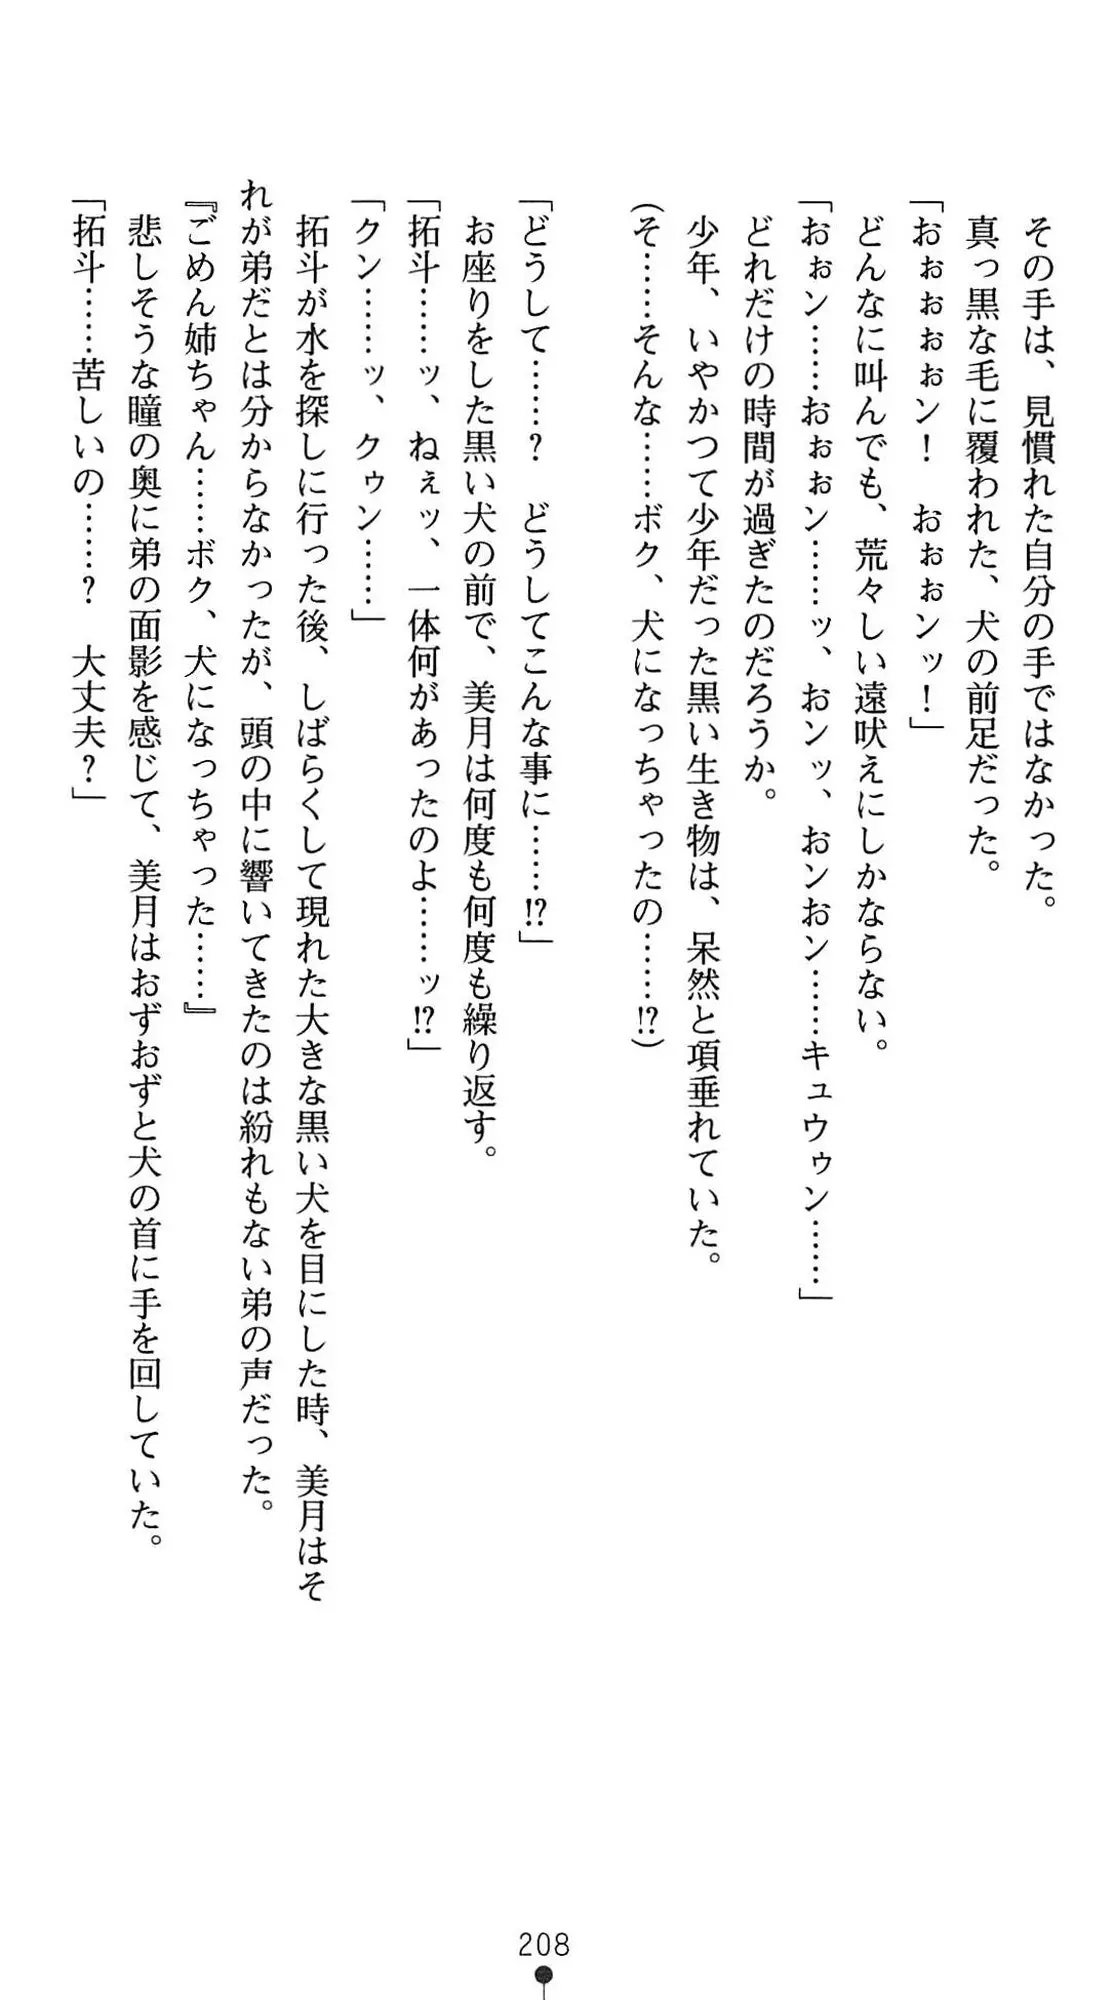 その手は、見慣れた自分の手ではなかった。
真っ黒な毛に覆われた、犬の前足だった。
「おぉぉぉぉン！　おぉぉンッ！」
どんなに叫んでも、荒々しい遠吠えにしかならない。
「おぉン……おぉぉン……ッ、おンッ、おンおン……キュウゥン……」
どれだけの時間が過ぎたのだろうか。
少年、いやかつて少年だった黒い生き物は、呆然と項垂れていた。
（そ……そんな……ボク、犬になっちゃったの……⁉）
「どうして……？　どうしてこんな事に……⁉」
お座りをした黒い犬の前で、美月は何度も何度も繰り返す。
「拓斗……ッ、ねぇッ、一体何があったのよ……ッ⁉」
「クン……ッ、クゥン……」
拓斗が水を探しに行った後、しばらくして現れた大きな黒い犬を目にした時、美月はそ
れが弟だとは分からなかったが、頭の中に響いてきたのは紛れもない弟の声だった。
『ごめん姉ちゃん……ボク、犬になっちゃった……』
悲しそうな瞳の奥に弟の面影を感じて、美月はおずおずと犬の首に手を回していた。
「拓斗……苦しいの……？　大丈夫？」
208